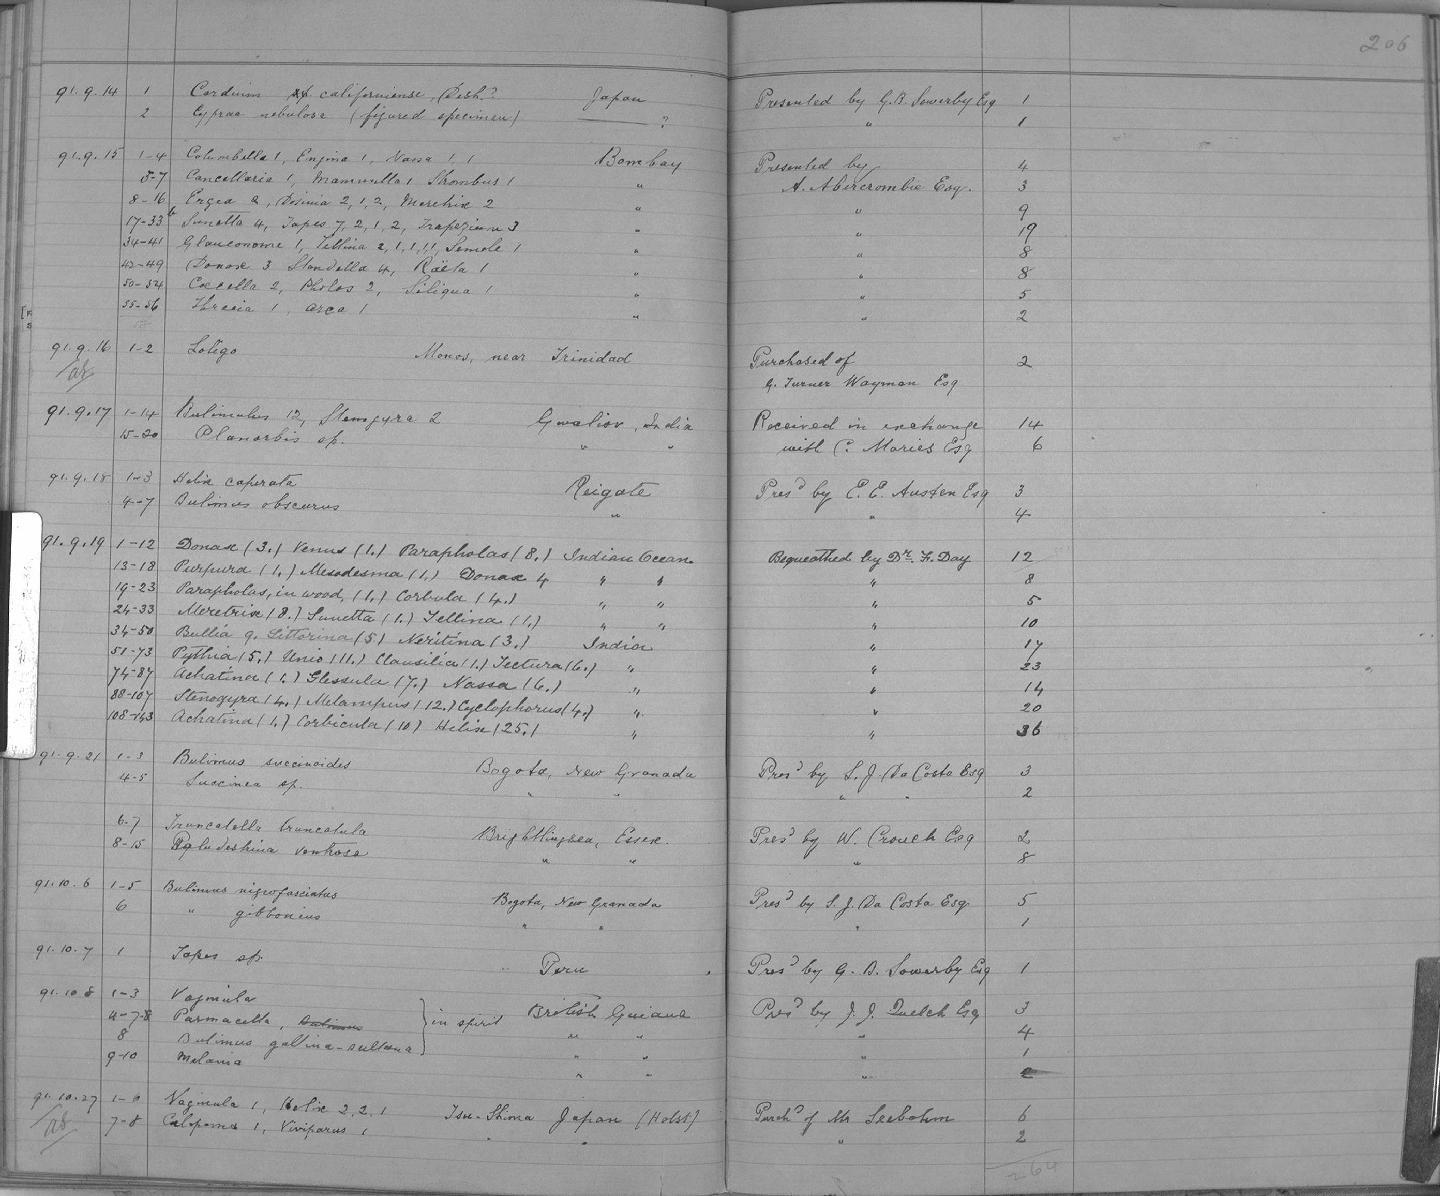 206
91.9.14 1 Cardium californiense, Desh.? Japan Presented by G.B. Sowerby Esq 1
2 Cypraea nebulosa (figured specimen) ——— ? " 1
91.9.15 1-4 Columbella 1, Engina 1, Nassa 1, 1 Bombay Presented by 4
5-7 Cancellaria 1, Mammilla 1 Strombus 1 " A. Abercrombie Esq. 3
8-16 Ergea 2, Dosinia 2,1,2, Meretrix 2 " " 9
17-33b Sunetta 4, Tapes 7,2,1,2, Trapezium 3 " " 19
34-41 Glauconome 1, Tellina 2,1,1,1,1, Semele 1 " " 8
42-49 Donax 3 Standella 4, Raëta 1 " " 8
50-54 Coecella 2, Pholas 2, Siligua 1 " " 5
55-56 Thracia 1, Arca 1 " " 2
91.9.16 1-2 Loligo Monos, near Trinidad Purchased of 2
G. Turner Wayman Esq
91.9.17 1-14 Bulimulus 12, Stenogyra 2 Gwalior, India Received in exchange 14
15-20 Planorbis sp. " " with C. Maries Esq 6
91.9.18 1-3 Helix caperata Reigate Presd by E. E. Austen Esq 3
4-7 Bulimus obscurus " " 4
91.9.19 1-12 Donax (3.) Venus (1.) Parapholas (8.) Indian Ocean Bequeathed by Dr. F. Day 12
13-18 Purpura (1.) Mesodesma (1.) Donax 4 " " " 8
19-23 Parapholas, in wood, (1.) Corbula (4.) " " " 5
24-33 Meretrix (8.) Sunetta (1.) Tellina (1.) " " " 10
34-50 Bullia 9. Littorina (5) Neritina (3.) India " 17
51-73 Pythia (5.) Unio (11.) Clausilia (1.) Tectura (6.) " " 23
74-87 Achatina (1.) Glessula (7.) Nassa (6.) " " 14
88-107 Stenogyra (4.) Melampus (12.) Cyclophorus (4.) " " 20
108-143 Achatina (1.) Corbicula (10) Helix (25.) " " 36
91.9.21 1-3 Bulimus succinoides Bogota, New Granada Presd by S. J. Da Costa Esq 3
4-5 Succinea sp. " " " " 2
6-7 Truncatella truncatula Brightlingsea, Essex. Presd by W. Crouch Esq 2
8-15 Paludestrina ventrosa " " " 8
91.10.6 1-5 Bulimus nigrofasciatus Bogota, New Granada Presd by S. J. Da Costa Esq. 5
6 " gibbonius " " " 1
91.10.7 1 Tapes sp. Peru Presd by G. B. Sowerby Esq 1
91.10.8 1-3 Vaginula British Guiana Presd by J. J. Quelch Esq 3
4-7-8 Parmacella, Bulimus } in spirit " " " 4
8 Bulimus gallina-sultana " " " 1
9-10 Melania " " " 2
91.10.27 1-6 Vaginula 1, Helix 2,2,1 Tsu-Shima Japan (Holst) Purchd of Mr Seebohm 6
7-8 1, Viviparus 1 " " " 2
264